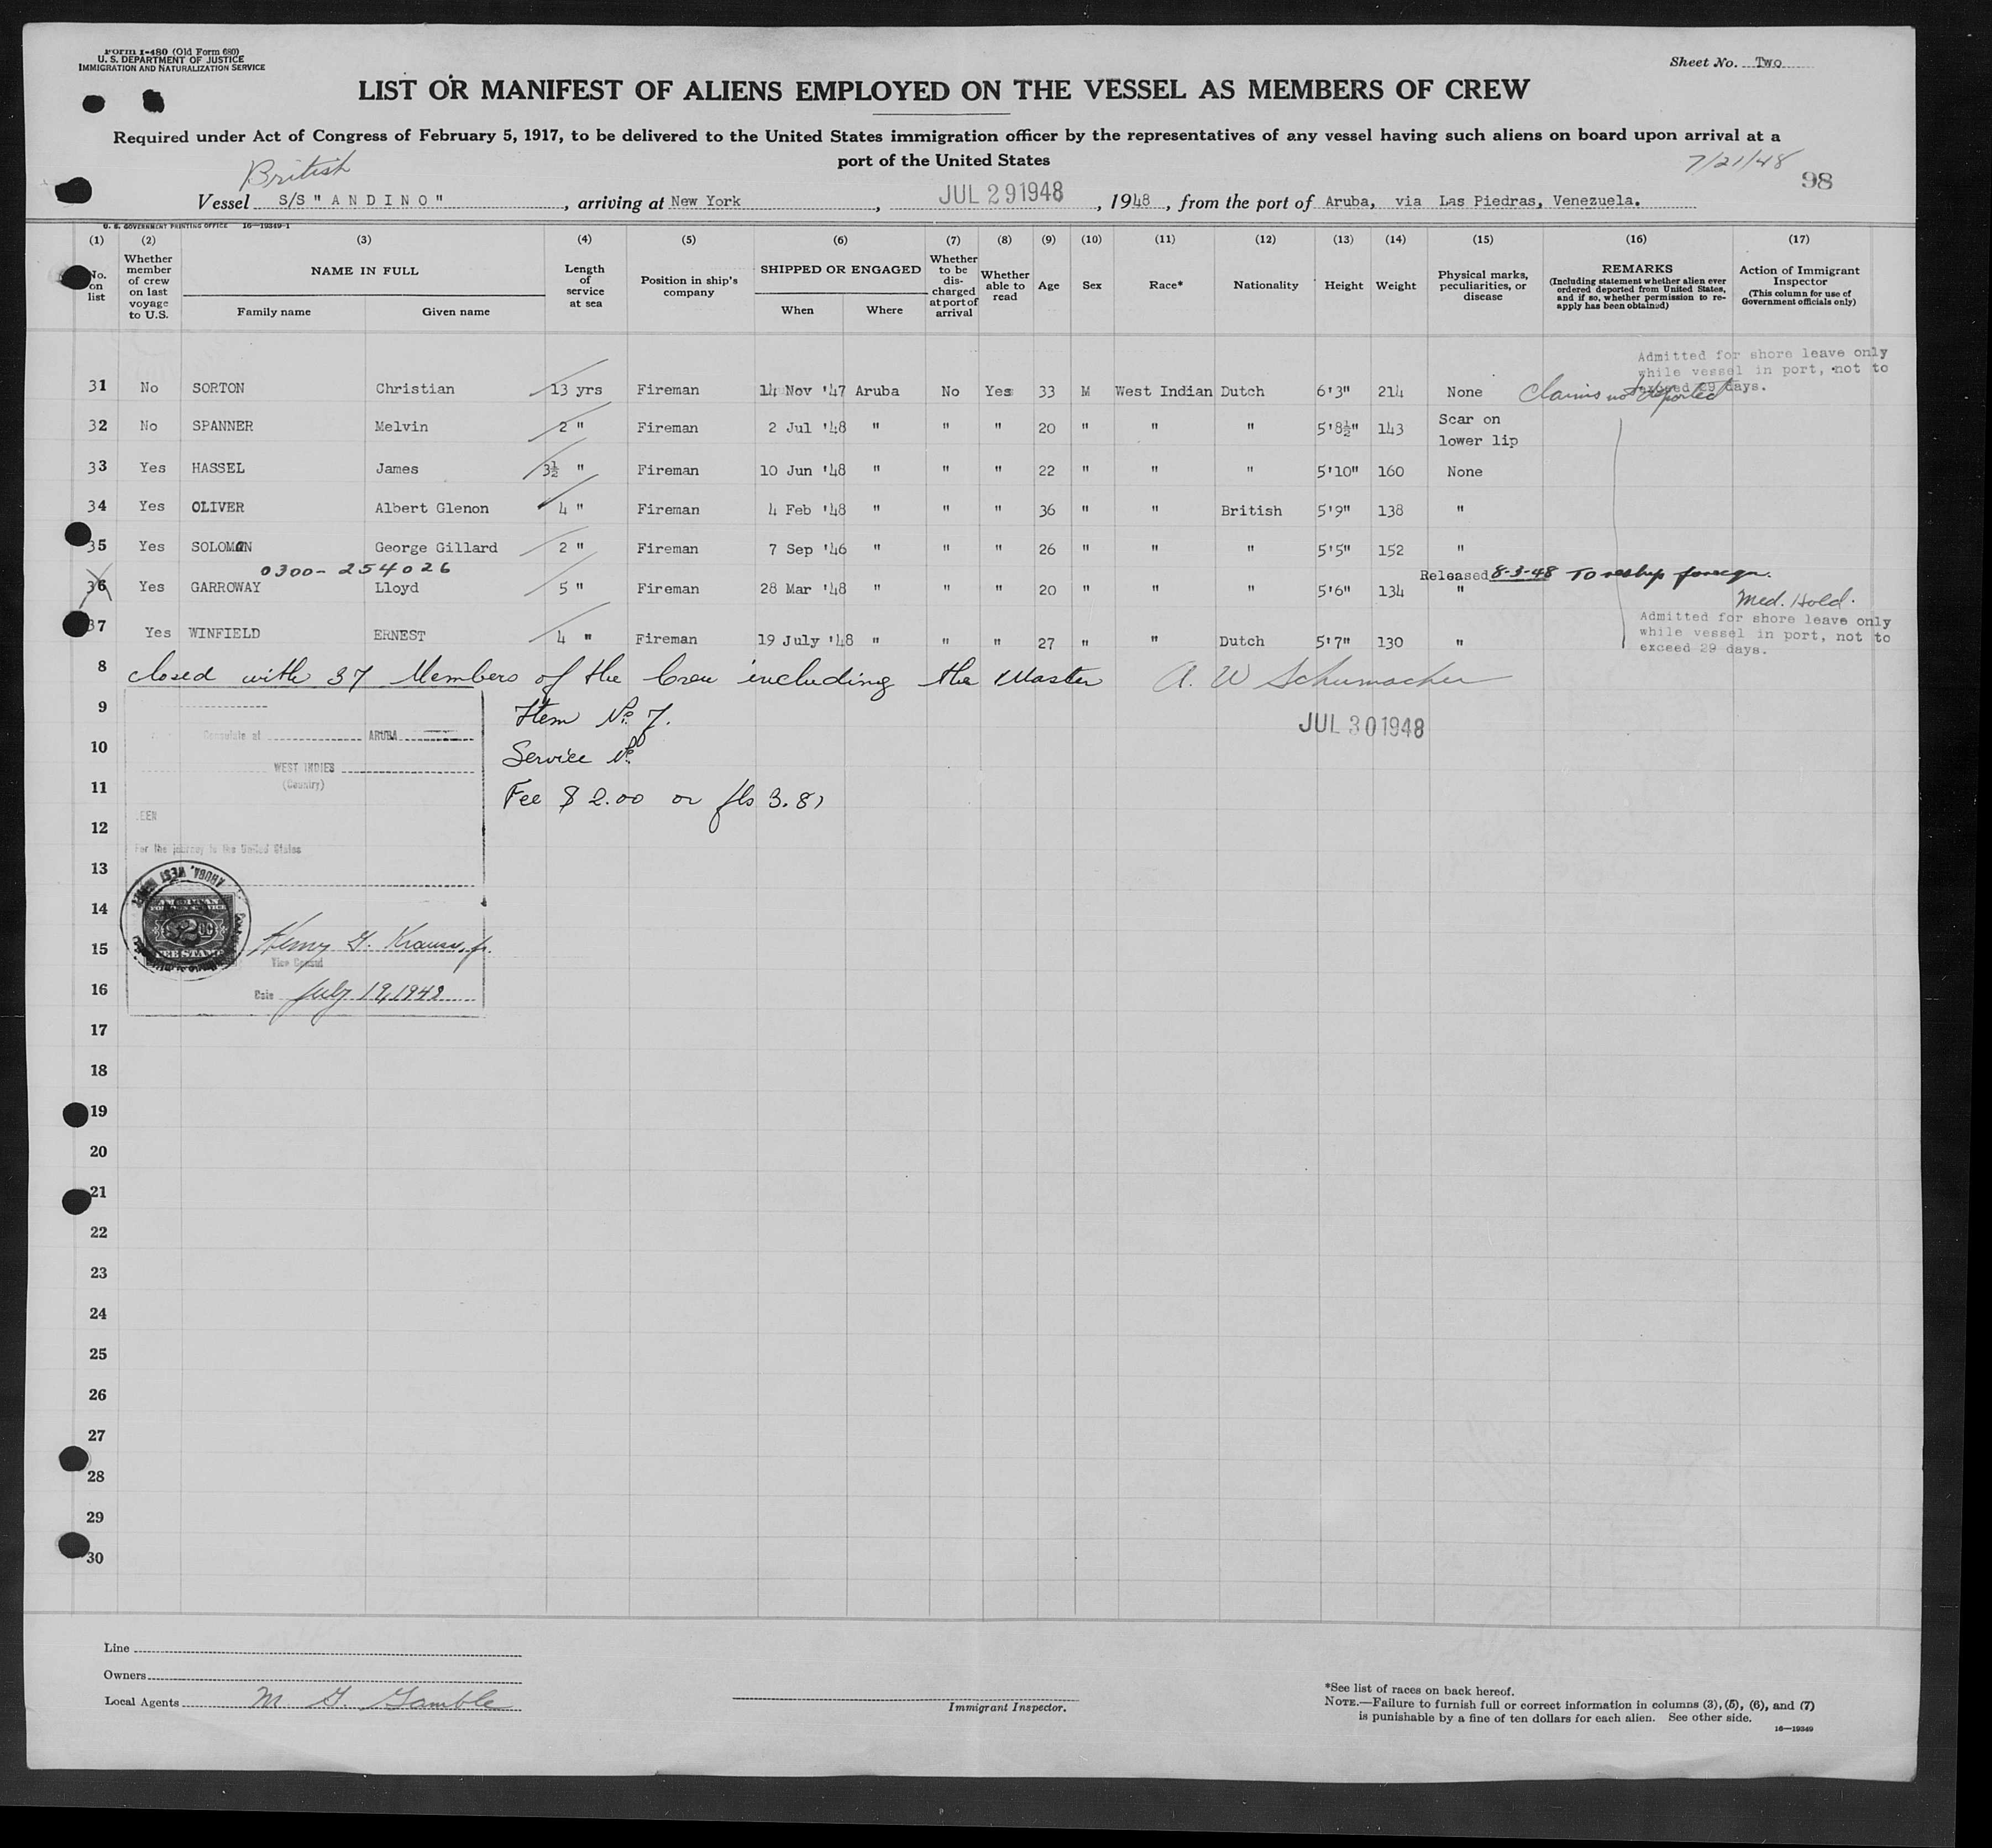 Form I-480 (Old Form 680)
U. S. DEPARTMENT OF JUSTICE
IMMIGRATION AND NATURALIZATION SERVICE
Sheet No. Two
LIST OR MANIFEST OF ALIENS EMPLOYED ON THE VESSEL AS MEMBERS OF CREW
Required under Act of Congress of February 5, 1917, to be delivered to the United States immigration officer by the representatives of any vessel having such aliens on board upon arrival at a
port of the United States
British
7/21/48
98
Vessel S/S "ANDINO", arriving at New York, JUL 29 1948, 1948, from the port of Aruba, via Las Piedras, Venezuela.
U. S. GOVERNMENT PRINTING OFFICE 16—19349-1
(1) (2) (3) (4) (5) (6) (7) (8) (9) (10) (11) (12) (13) (14) (15) (16) (17)
No. on list
Whether member of crew on last voyage to U.S.
NAME IN FULL
Family name Given name
Length of service at sea
Position in ship's company
SHIPPED OR ENGAGED
When Where
Whether to be discharged at port of arrival
Whether able to read
Age
Sex
Race*
Nationality
Height
Weight
Physical marks, peculiarities, or disease
REMARKS
(Including statement whether alien ever ordered deported from United States, and if so, whether permission to re-apply has been obtained)
Action of Immigrant Inspector
(This column for use of Government officials only)
Admitted for shore leave only
while vessel in port, not to
exceed 29 days.
31 No SORTON Christian 13 yrs Fireman 14 Nov '47 Aruba No Yes 33 M West Indian Dutch 6'3" 214 None Claims not deported
32 No SPANNER Melvin 2 " Fireman 2 Jul '48 " " " 20 " " " 5'8½" 143 Scar on lower lip
33 Yes HASSEL James 3½ " Fireman 10 Jun '48 " " " 22 " " " 5'10" 160 None
34 Yes OLIVER Albert Glenon 4 " Fireman 4 Feb '48 " " " 36 " " British 5'9" 138 "
35 Yes SOLOMON George Gillard 2 " Fireman 7 Sep '46 " " " 26 " " " 5'5" 152 "
0300-254026
Released 8-3-48 To reship foreign.
36 Yes GARROWAY Lloyd 5 " Fireman 28 Mar '48 " " " 20 " " " 5'6" 134 "
Med. Hold.
Admitted for shore leave only
while vessel in port, not to
exceed 29 days.
37 Yes WINFIELD ERNEST 4 " Fireman 19 July '48 " " " 27 " " Dutch 5'7" 130 "
8 closed with 37 Members of the Crew including the Master A. W Schumacher
9 Item No. 7.
JUL 30 1948
Consulate at ARUBA
10 Service No.
WEST INDIES
(Country)
11 Fee $ 2.00 or fls 3.81
12
For the journey to the United States
13
ARUBA, WEST INDIES
14
AMERICAN
FOREIGN SERVICE
$2.00
FEE STAMP
15 Henry G. Krausse, jr.
Vice Consul
16 Date July 19, 1948
17
18
19
20
21
22
23
24
25
26
27
28
29
30
Line
Owners
Local Agents M G. Gamble
Immigrant Inspector.
*See list of races on back hereof.
NOTE.—Failure to furnish full or correct information in columns (3), (5), (6), and (7)
is punishable by a fine of ten dollars for each alien. See other side.
16—19349